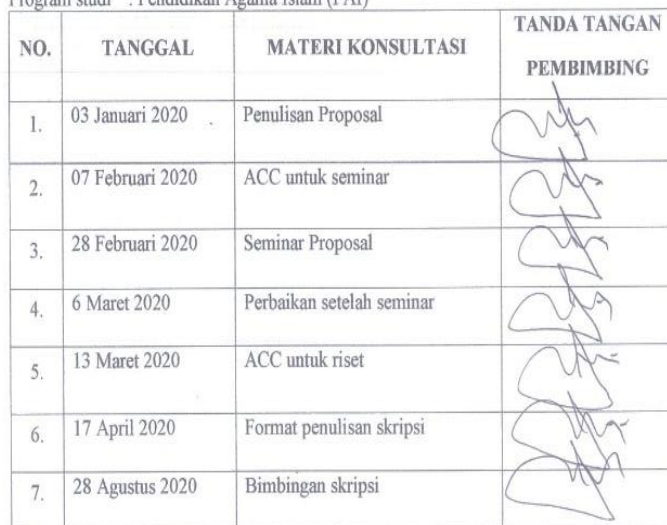 Program studi : Pendidikan Agama Islam (PAI)
NO. TANGGAL MATERI KONSULTASI TANDA TANGAN PEMBIMBING
1. 03 Januari 2020 Penulisan Proposal
2. 07 Februari 2020 ACC untuk seminar
3. 28 Februari 2020 Seminar Proposal
4. 6 Maret 2020 Perbaikan setelah seminar
5. 13 Maret 2020 ACC untuk riset
6. 17 April 2020 Format penulisan skripsi
7. 28 Agustus 2020 Bimbingan skripsi